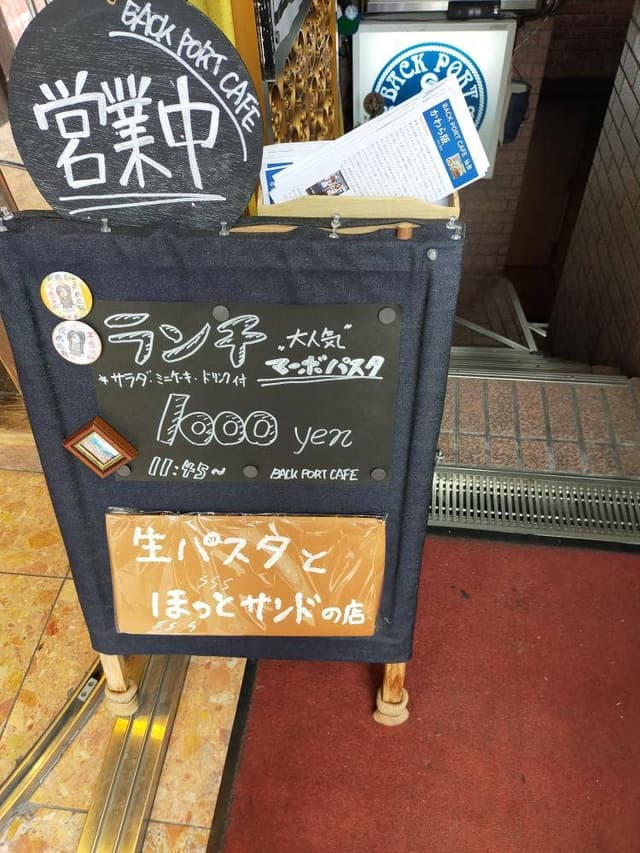 BACK PORT CAFE
営業中
BACK PORT
BACK PORT CAFE
かわら版
ランチ
"大人気"
マーボパスタ
*サラダ・ミニケーキ・ドリンク付
1000 yen
11:45~
BACK PORT CAFE
生パスタと
ほっとサンドの店